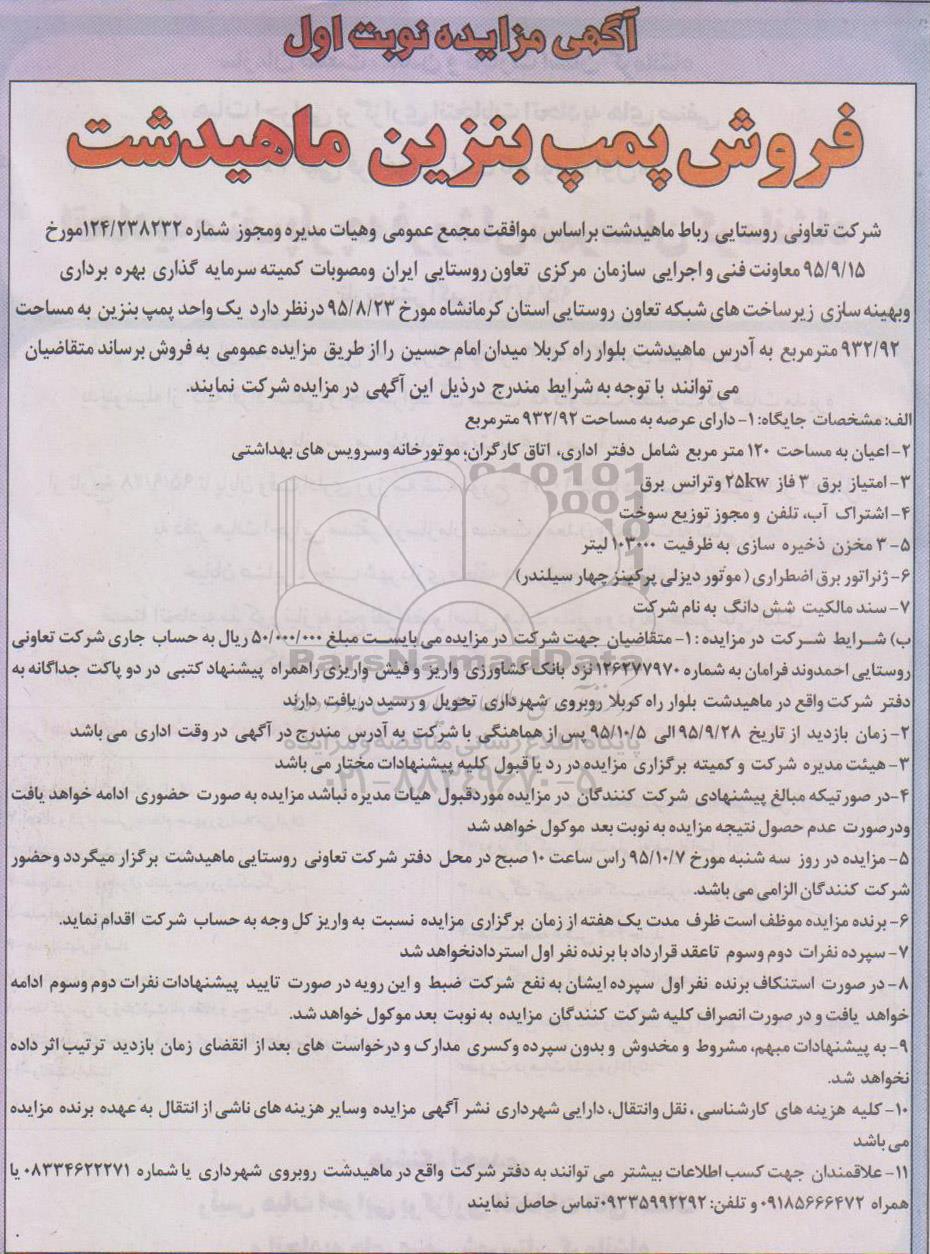 آگهی مزایده نوبت اول
فروش پمپ بنزین ماهیدشت
شرکت تعاونی روستایی رباط ماهیدشت براساس موافقت مجمع عمومی وهیات مدیره ومجوز شماره ۱۲۴/۲۳۸۲۳۲مورخ
۹۵/۹/۱۵ معاونت فنی و اجرایی سازمان مرکزی تعاون روستایی ایران ومصوبات کمیته سرمایه گذاری بهره برداری
وبهینه سازی زیرساخت های شبکه تعاون روستایی استان کرمانشاه مورخ ۹۵/۸/۲۳ درنظر دارد یک واحد پمپ بنزین به مساحت
۹۳۲/۹۲ مترمربع به آدرس ماهیدشت بلوار راه کربلا میدان امام حسین را از طریق مزایده عمومی به فروش برساند متقاضیان
می توانند با توجه به شرایط مندرج درذیل این آگهی در مزایده شرکت نمایند.
الف: مشخصات جایگاه: ۱- دارای عرصه به مساحت ۹۳۲/۹۲ مترمربع
۲- اعیان به مساحت ۱۲۰ متر مربع شامل دفتر اداری، اتاق کارگران، موتورخانه وسرویس های بهداشتی
۳- امتیاز برق ۳ فاز ۲۵kw وترانس برق
۴- اشتراک آب، تلفن و مجوز توزیع سوخت
۵- ۳ مخزن ذخیره سازی به ظرفیت ۱۰۳۰۰۰ لیتر
۶- ژنراتور برق اضطراری ( موتور دیزلی پرکینز چهار سیلندر)
۷- سند مالکیت شش دانگ به نام شرکت
ب) شرایط شرکت در مزایده : ۱- متقاضیان جهت شرکت در مزایده می بایست مبلغ ۵۰/۰۰۰/۰۰۰ ریال به حساب جاری شرکت تعاونی
روستایی احمدوند فرامان به شماره ۱۲۶۲۷۷۹۷۰ نزد بانک کشاورزی واریز و فیش واریزی راهمراه پیشنهاد کتبی در دو پاکت جداگانه به
دفتر شرکت واقع در ماهیدشت بلوار راه کربلا روبروی شهرداری تحویل و رسید دریافت دارند
۲- زمان بازدید از تاریخ ۹۵/۹/۲۸ الی ۹۵/۱۰/۵ پس از هماهنگی با شرکت به آدرس مندرج در آگهی در وقت اداری می باشد
۳- هیئت مدیره شرکت و کمیته برگزاری مزایده در رد یا قبول کلیه پیشنهادات مختار می باشد
۴-در صورتیکه مبالغ پیشنهادی شرکت کنندگان در مزایده موردقبول هیات مدیره نباشد مزایده به صورت حضوری ادامه خواهد یافت
ودرصورت عدم حصول نتیجه مزایده به نوبت بعد موکول خواهد شد
۵- مزایده در روز سه شنبه مورخ ۹۵/۱۰/۷ راس ساعت ۱۰ صبح در محل دفتر شرکت تعاونی روستایی ماهیدشت برگزار میگردد وحضور
شرکت کنندگان الزامی می باشد.
۶- برنده مزایده موظف است ظرف مدت یک هفته از زمان برگزاری مزایده نسبت به واریز کل وجه به حساب شرکت اقدام نماید.
۷- سپرده نفرات دوم وسوم تاعقد قرارداد با برنده نفر اول استردادنخواهد شد
۸- در صورت استنکاف برنده نفر اول سپرده ایشان به نفع شرکت ضبط و این رویه در صورت تایید پیشنهادات نفرات دوم وسوم ادامه
خواهد یافت و در صورت انصراف کلیه شرکت کنندگان مزایده به نوبت بعد موکول خواهد شد.
۹- به پیشنهادات مبهم، مشروط و مخدوش و بدون سپرده وکسری مدارک و درخواست های بعد از انقضای زمان بازدید ترتیب اثر داده
نخواهد شد.
۱۰- کلیه هزینه های کارشناسی ، نقل وانتقال، دارایی شهرداری نشر آگهی مزایده وسایر هزینه های ناشی از انتقال به عهده برنده مزایده
می باشد
۱۱- علاقمندان جهت کسب اطلاعات بیشتر می توانند به دفتر شرکت واقع در ماهیدشت روبروی شهرداری یا شماره ۰۸۳۳۴۶۲۲۲۷۱ یا
همراه ۰۹۱۸۵۶۶۶۴۷۲ و تلفن: ۰۹۳۳۵۹۹۲۲۹۲تماس حاصل نمایند
ParsNamadData